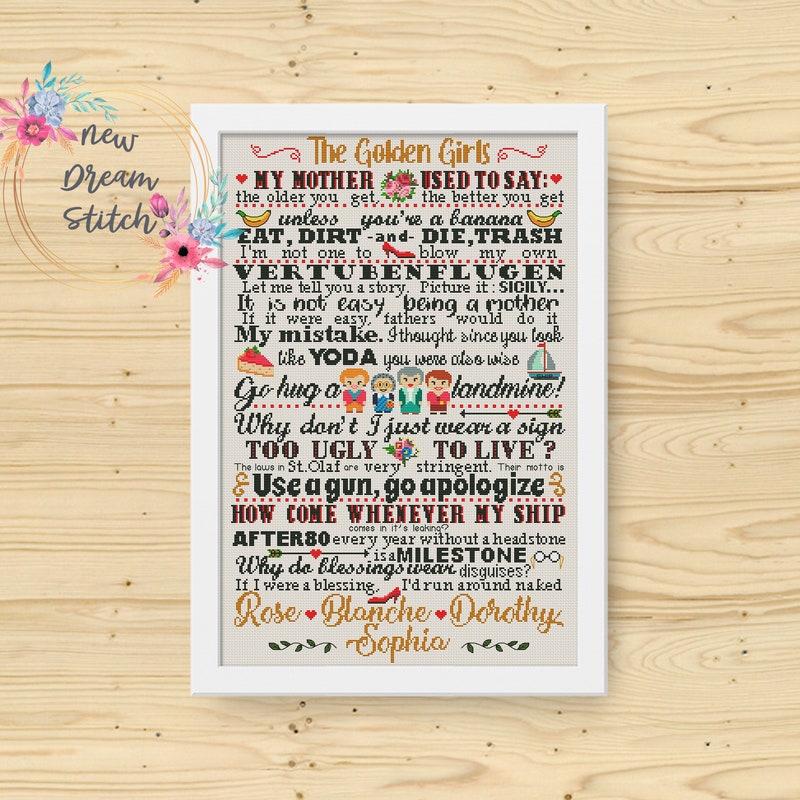 new
Dream
Stitch
The Golden Girls
MY MOTHER USED TO SAY:
the older you get, the better you get
unless you're a banana
EAT, DIRT -and- DIE, TRASH
I'm not one to blow my own
VERTUBENFLUGEN
Let me tell you a story. Picture it: SICILY...
It is not easy being a mother
If it were easy, fathers would do it
My mistake. I thought since you look
like YODA you were also wise
Go hug a landmine!
Why don't I just wear a sign
TOO UGLY TO LIVE?
The laws in St. Olaf are very stringent. Their motto is
Use a gun, go apologize
HOW COME WHENEVER MY SHIP
comes in it's leaking?
AFTER 80 every year without a headstone
is a MILESTONE
Why do blessings wear disguises?
If I were a blessing, I'd run around naked
Rose Blanche Dorothy
Sophia